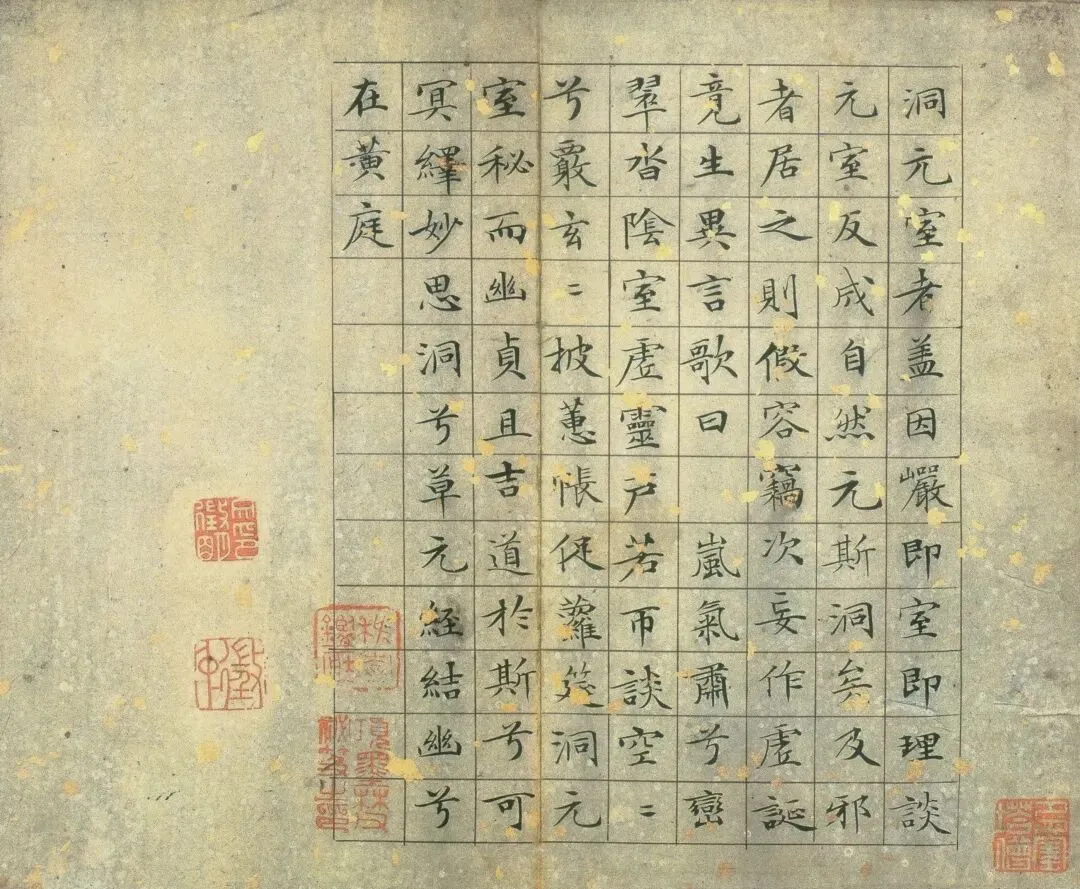 洞元室者盖因巖即室即理談
元室反成自然元斯洞矣及邪
者居之則假容竊次妄作虛誕
竟生異言歌曰　嵐氣肅兮巒
翠沓陰室虛靈戶若帀談空〻
兮覈玄〻披蕙帳促蘿筵洞元
室秘而幽貞且吉道於斯兮可
冥繹妙思洞兮草元經結幽兮
在黃庭